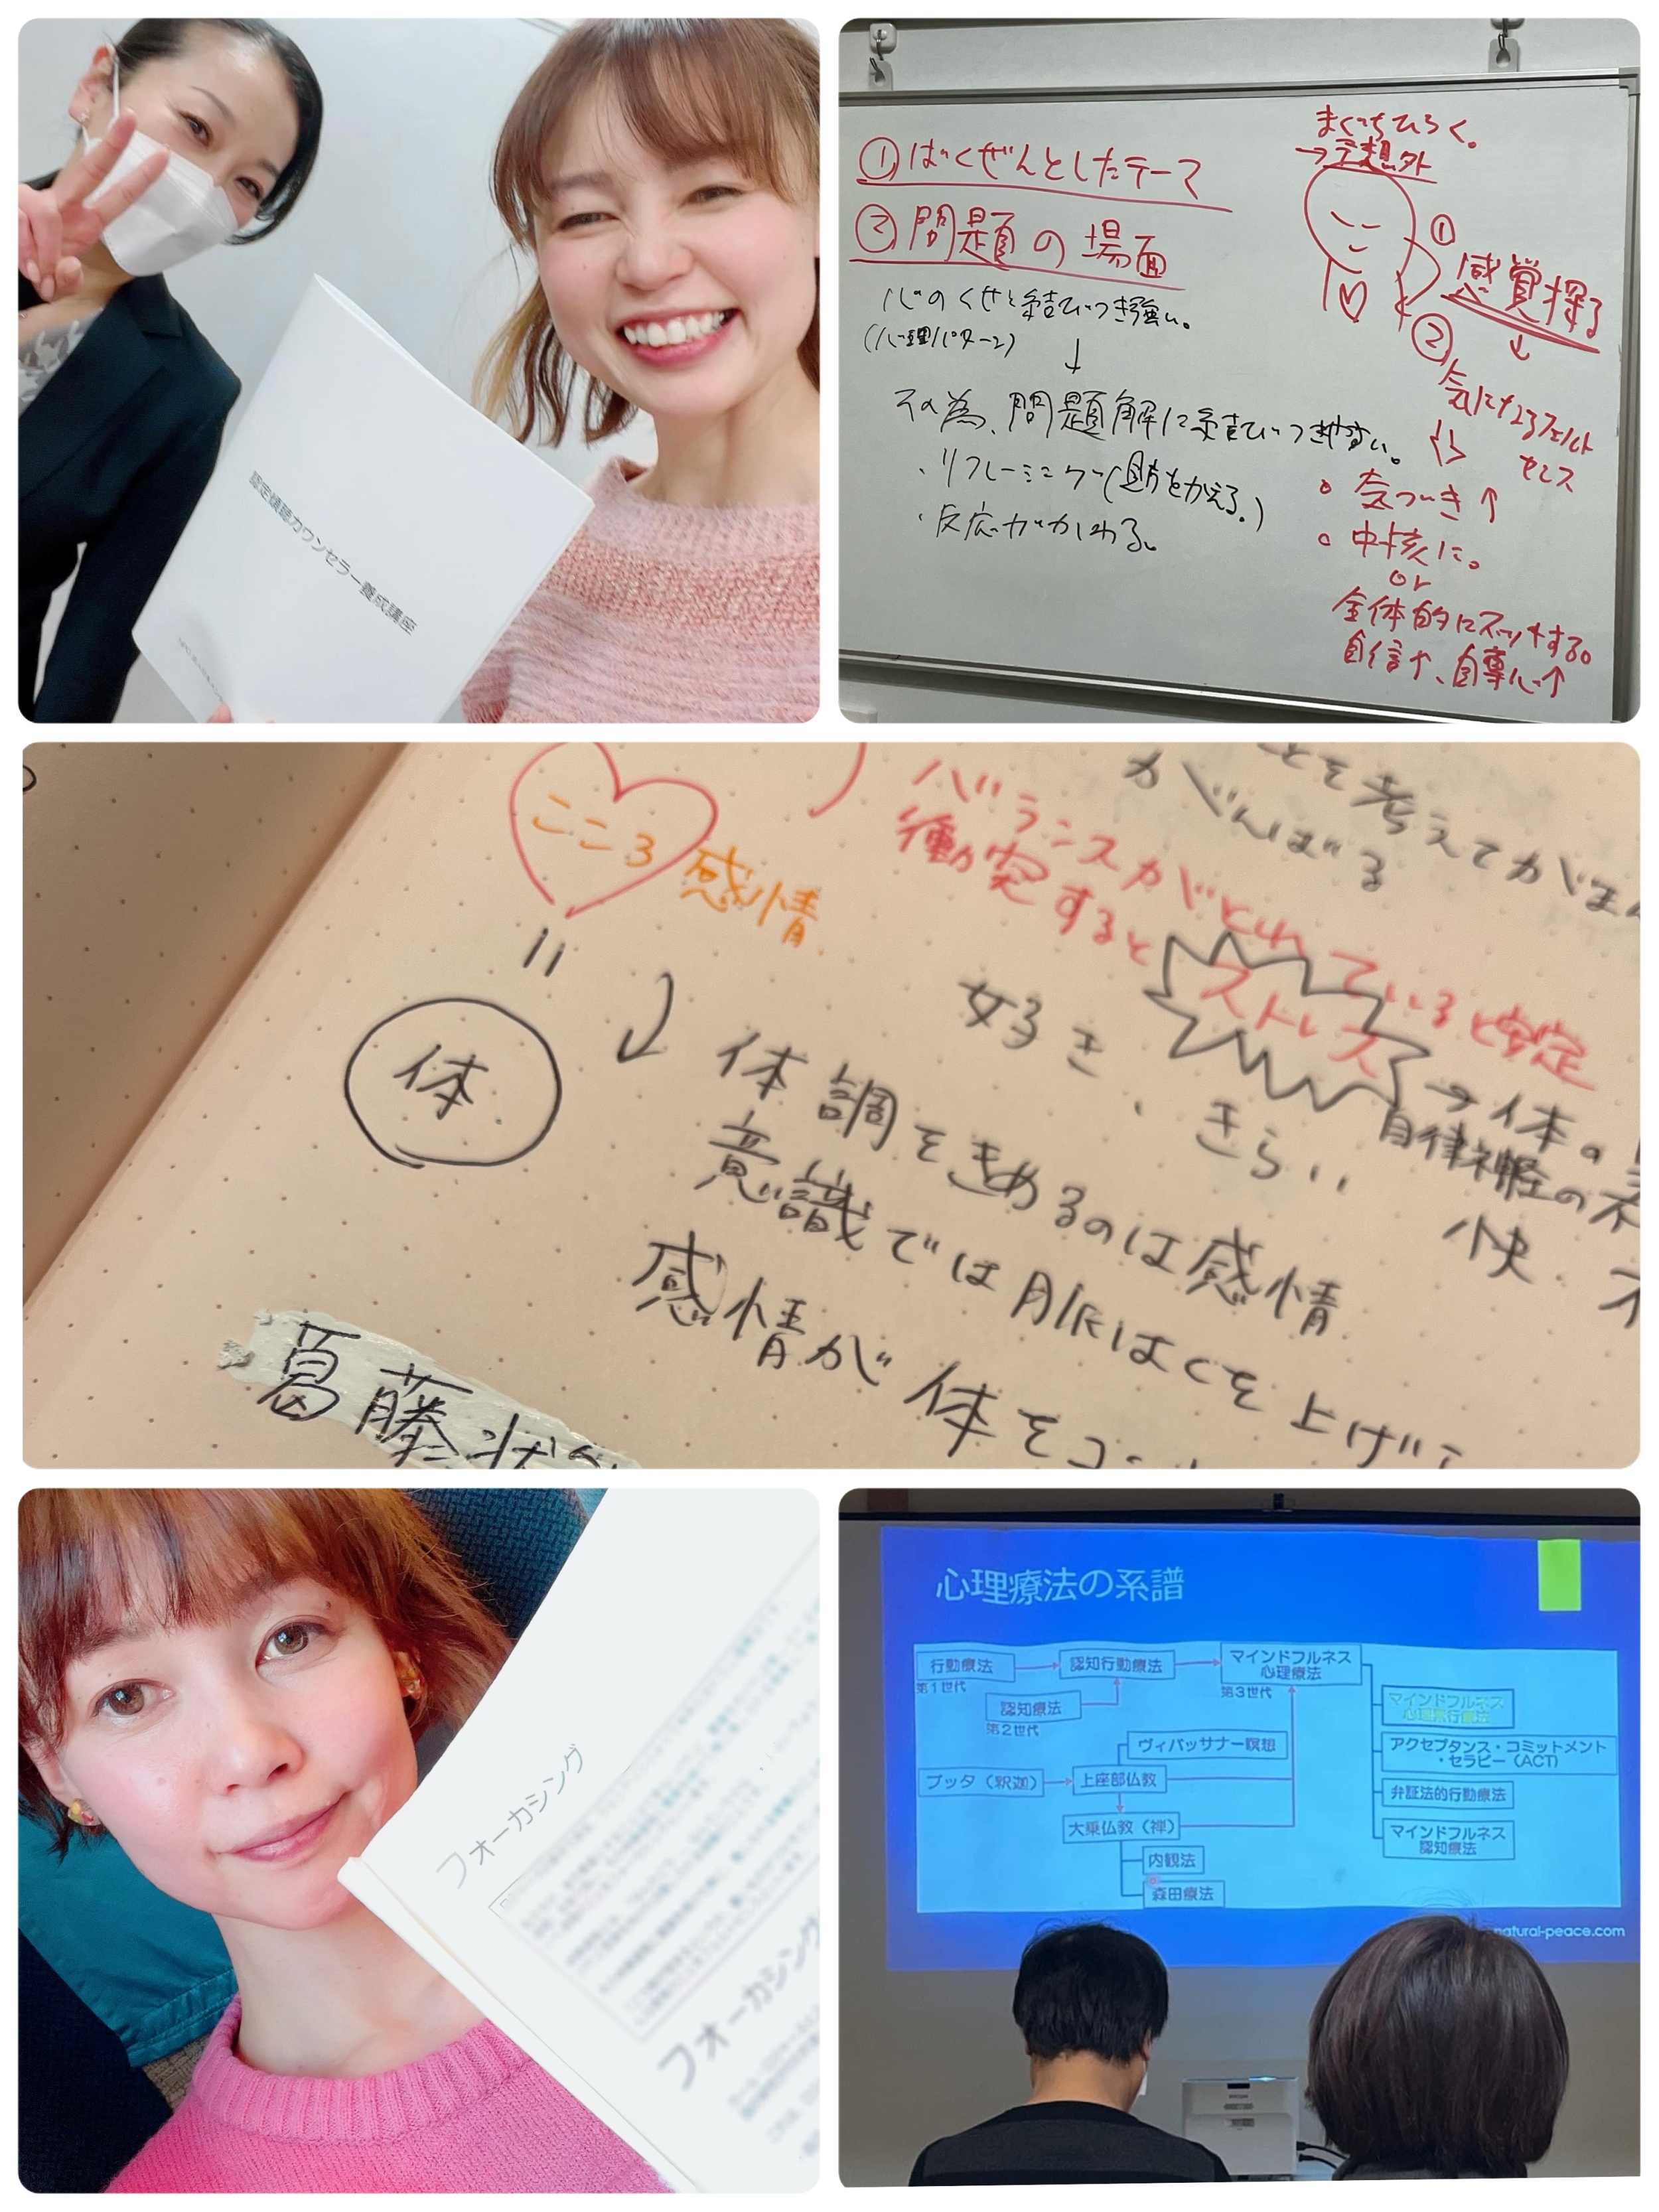 認定傾聴カウンセラー養成講座
①ばくぜんとしたテーマ
②問題の場面
心のくせと結びつき強い。
(心理パターン)
↓
その為、問題解に結びつきやすい。
・リフレーミング(見方をかえる。)
・反応がかわる。
まくっちひらく。
→予想外
①
感覚探る
↓
②
気になるフェルト
センス
○ 気づき↑
○ 中核に。
or
全体的にスッキする。
自信↑、自尊心↑
こころ
感情
=
体
とを考えてがまん
がんばる
バランスがとれていると安定
衝突すると
ストレス
→体の
自律神経の
好き、きらい
快
体調をきめるのは感情
意識では脈はくを上げ
感情が体をコン
葛藤状
フォーカシング
フォーカシング
心理療法の系譜
行動療法
第1世代
認知行動療法
マインドフルネス
心理療法
第3世代
認知療法
第2世代
マインドフルネス
ヴィパッサナー瞑想
アクセプタンス・コミットメント
・セラピー(ACT)
ブッタ(釈迦)
上座部仏教
弁証法的行動療法
大乗仏教(禅)
マインドフルネス
認知療法
内観法
森田療法
natural-peace.com